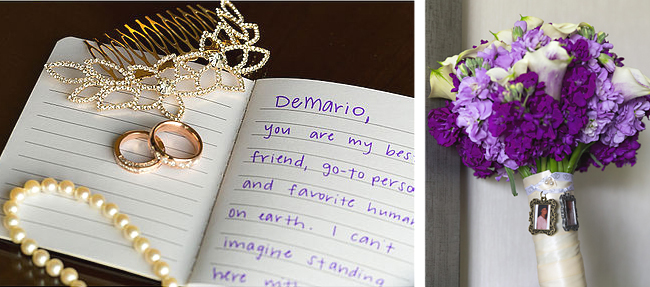 DeMario,
you are my
friend, go-to
and favorite
on earth. I can't
imagine standing
here